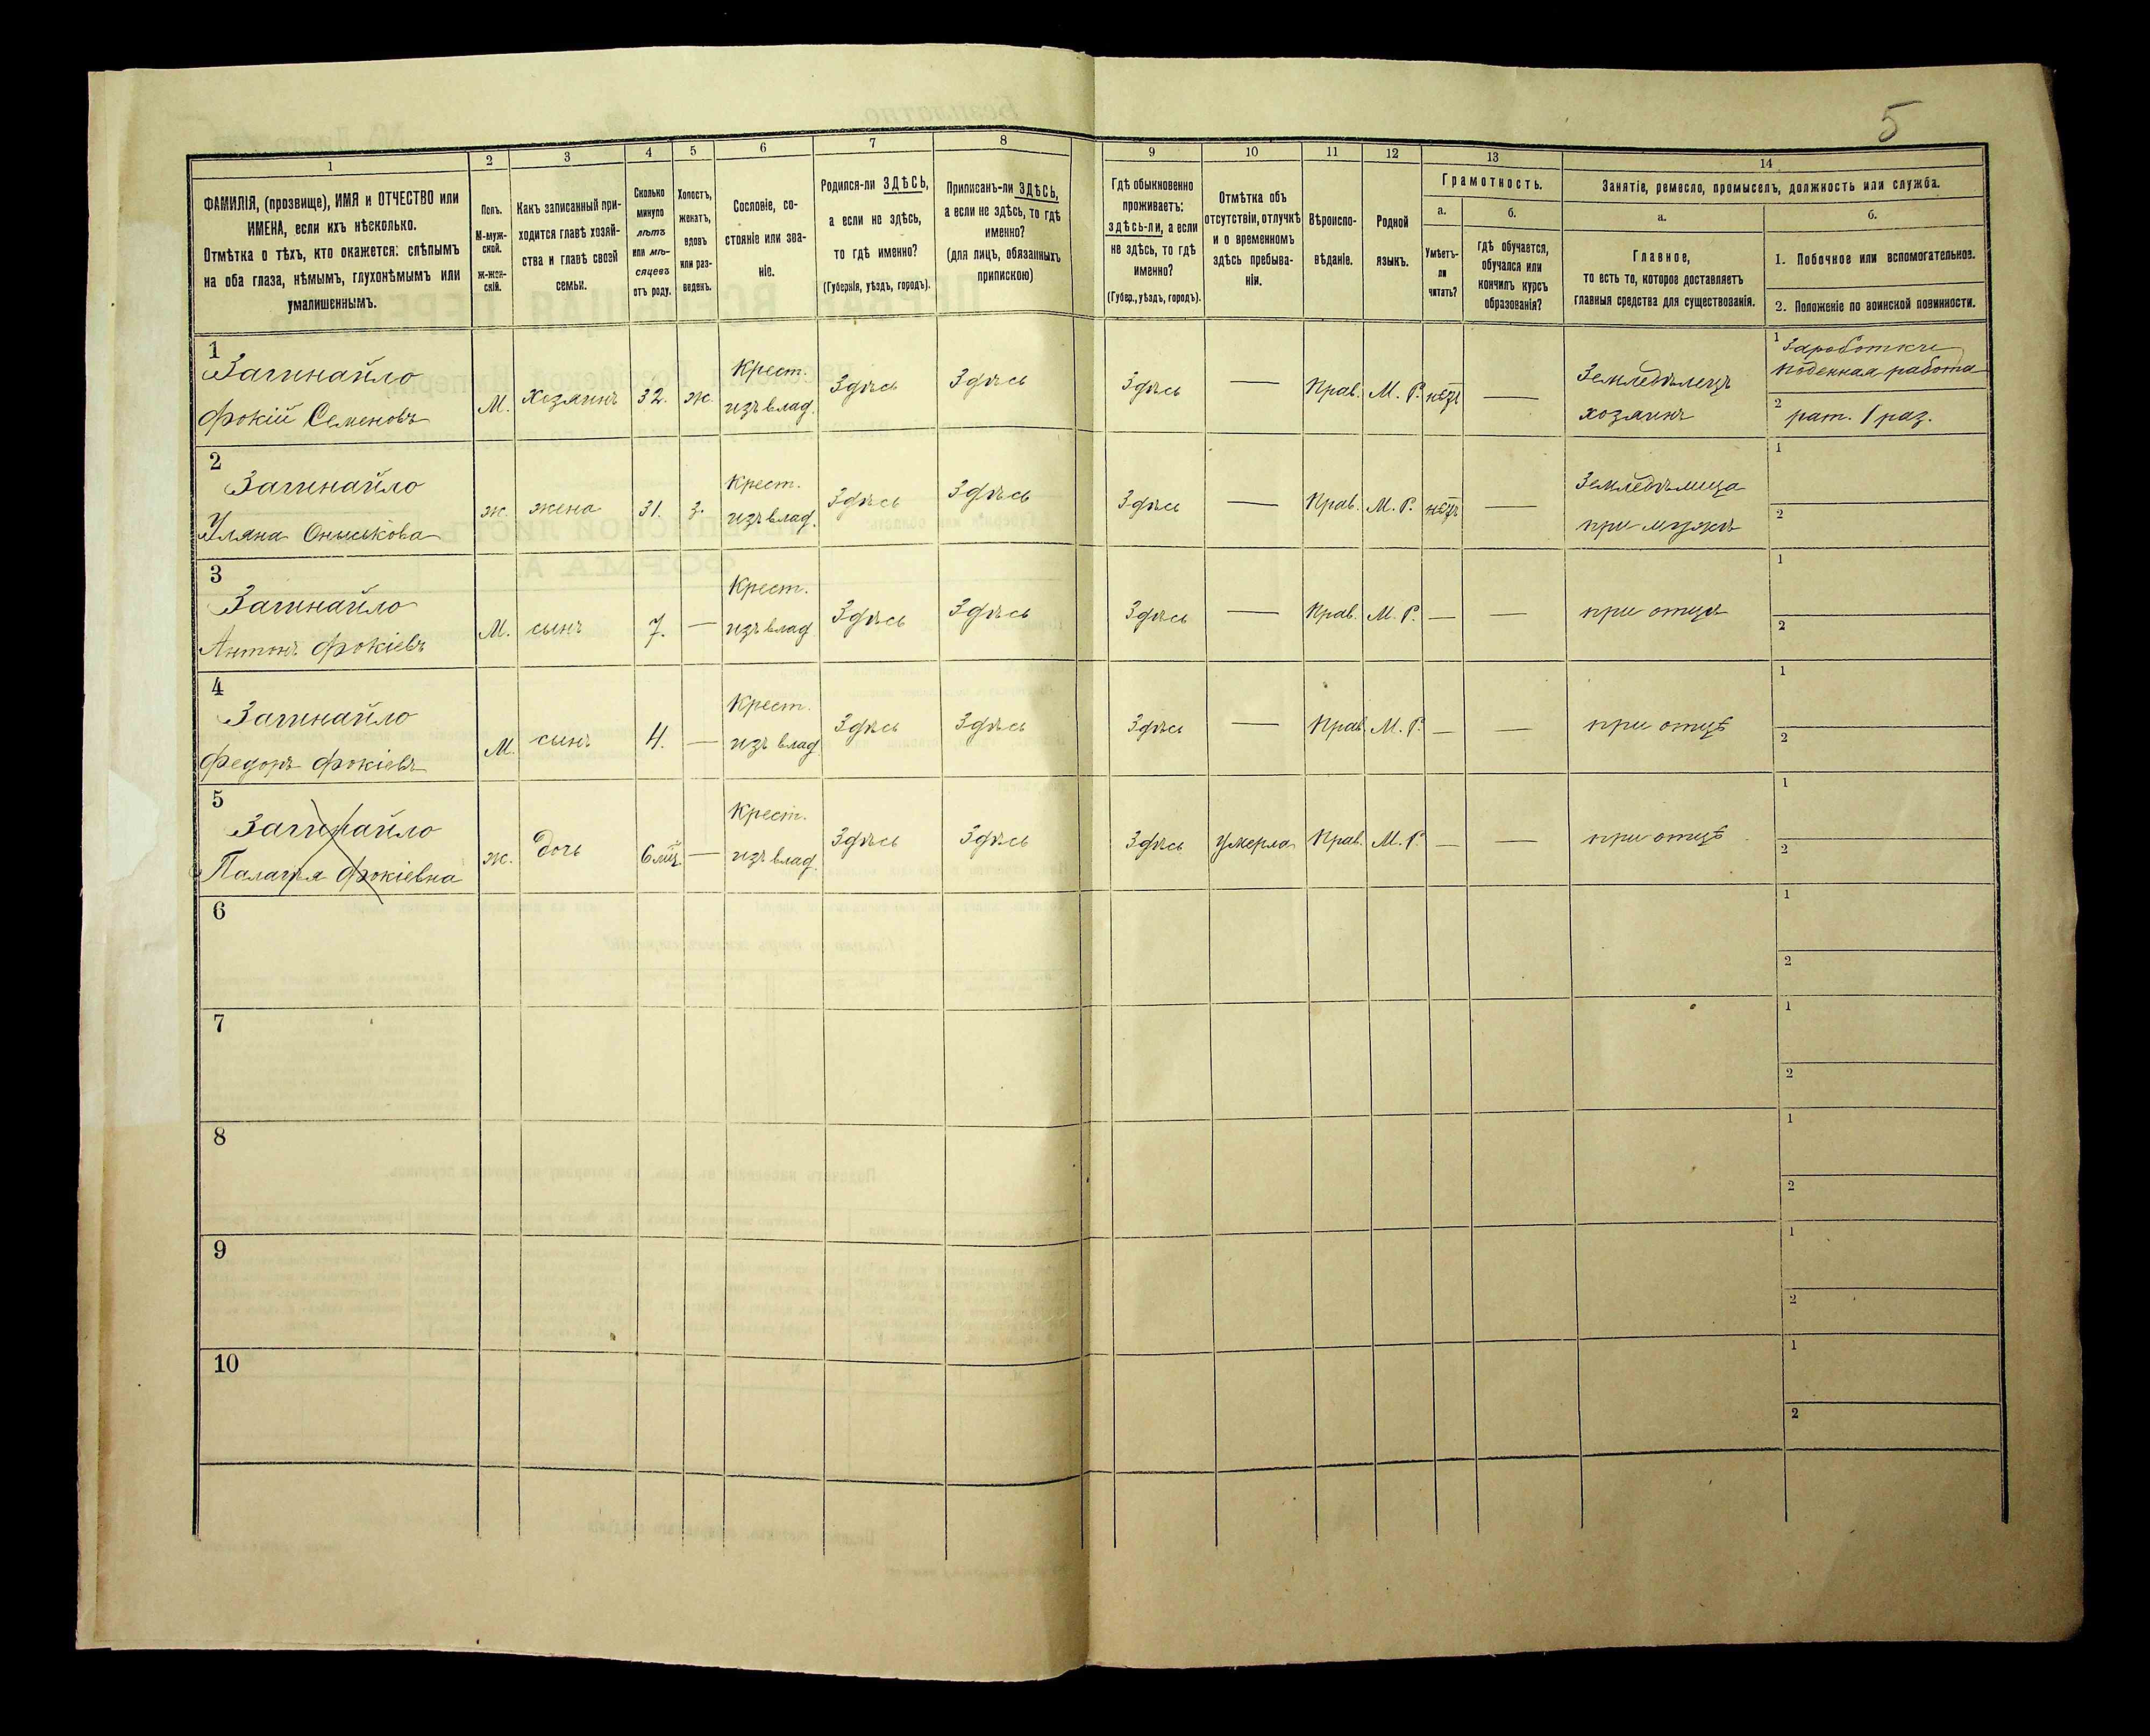 5
1
2
3
4
5
6
7
8
9
10
11
12
13
14
ФАМИЛІЯ, (прозвище), ИМЯ и ОТЧЕСТВО или
ИМЕНА, если ихъ нѣсколько.
Отмѣтка о тѣхъ, кто окажется: слѣпымъ
на оба глаза, нѣмымъ, глухонѣмымъ или
умалишеннымъ.
Полъ.
М-муж-
ской.
ж-жен-
скій.
Какъ записанный при-
ходится главѣ хозяй-
ства и главѣ своей
семьи.
Сколько
минуло
лѣтъ
или мѣ-
сяцевъ
отъ роду.
Холостъ,
женатъ,
вдовъ
или раз-
веденъ.
Сословіе, со-
стояніе или зва-
ніе.
Родился-ли ЗДѢСЬ,
а если не здѣсь,
то гдѣ именно?
(Губернія, уѣздъ, городъ).
Приписанъ-ли ЗДѢСЬ,
а если не здѣсь, то гдѣ
именно?
(для лицъ, обязанныхъ
припискою)
Гдѣ обыкновенно
проживаетъ:
здѣсь-ли, а если
не здѣсь, то гдѣ
именно?
(Губер., уѣздъ, городъ).
Отмѣтка объ
отсутствіи, отлучкѣ
и о временномъ
здѣсь пребыва-
ніи.
Вѣроиспо-
вѣданіе.
Родной
языкъ.
Грамотность.
а.
Умѣетъ-
ли
читать?
б.
гдѣ обучается,
обучался или
кончилъ курсъ
образованія?
Занятіе, ремесло, промыселъ, должность или служба.
а.
Главное,
то есть то, которое доставляетъ
главныя средства для существованія.
б.
1. Побочное или вспомогательное.
2. Положеніе по воинской повинности.
1
Загинайло
Фокій Семеновъ
М.
хозяинъ
32.
ж.
Крест.
изъ влад.
Здѣсь
Здѣсь
Здѣсь
—
Прав.
М. Р.
нѣтъ
—
Земледѣлецъ
хозяинъ
1
поденная работа
2
рат. 1 раз.
2
Загинайло
Уляна Оныськова
ж
жена
31.
з.
Крест.
изъ влад.
Здѣсь
Здѣсь
Здѣсь
—
Прав.
М. Р.
нѣтъ
—
Земледѣлица
при мужѣ
1
2
3
Загинайло
Антонъ Фокіевъ
М.
сынъ
7.
—
Крест.
изъ влад
Здѣсь
Здѣсь
Здѣсь
—
Прав.
М. Р.
—
—
при отцѣ
1
2
4
Загинайло
Федоръ Фокіевъ
М.
сынъ
4.
—
Крест.
изъ влад
Здѣсь
Здѣсь
Здѣсь
—
Прав.
М. Р.
—
—
при отцѣ
1
2
5
Загинайло
Палагѣя Фокіевна
ж.
дочь
6 мц.
—
Крест.
изъ влад.
Здѣсь
Здѣсь
Здѣсь
Умерла
Прав.
М. Р.
—
—
при отцѣ
1
2
6
1
2
7
1
2
8
1
2
9
1
2
10
1
2